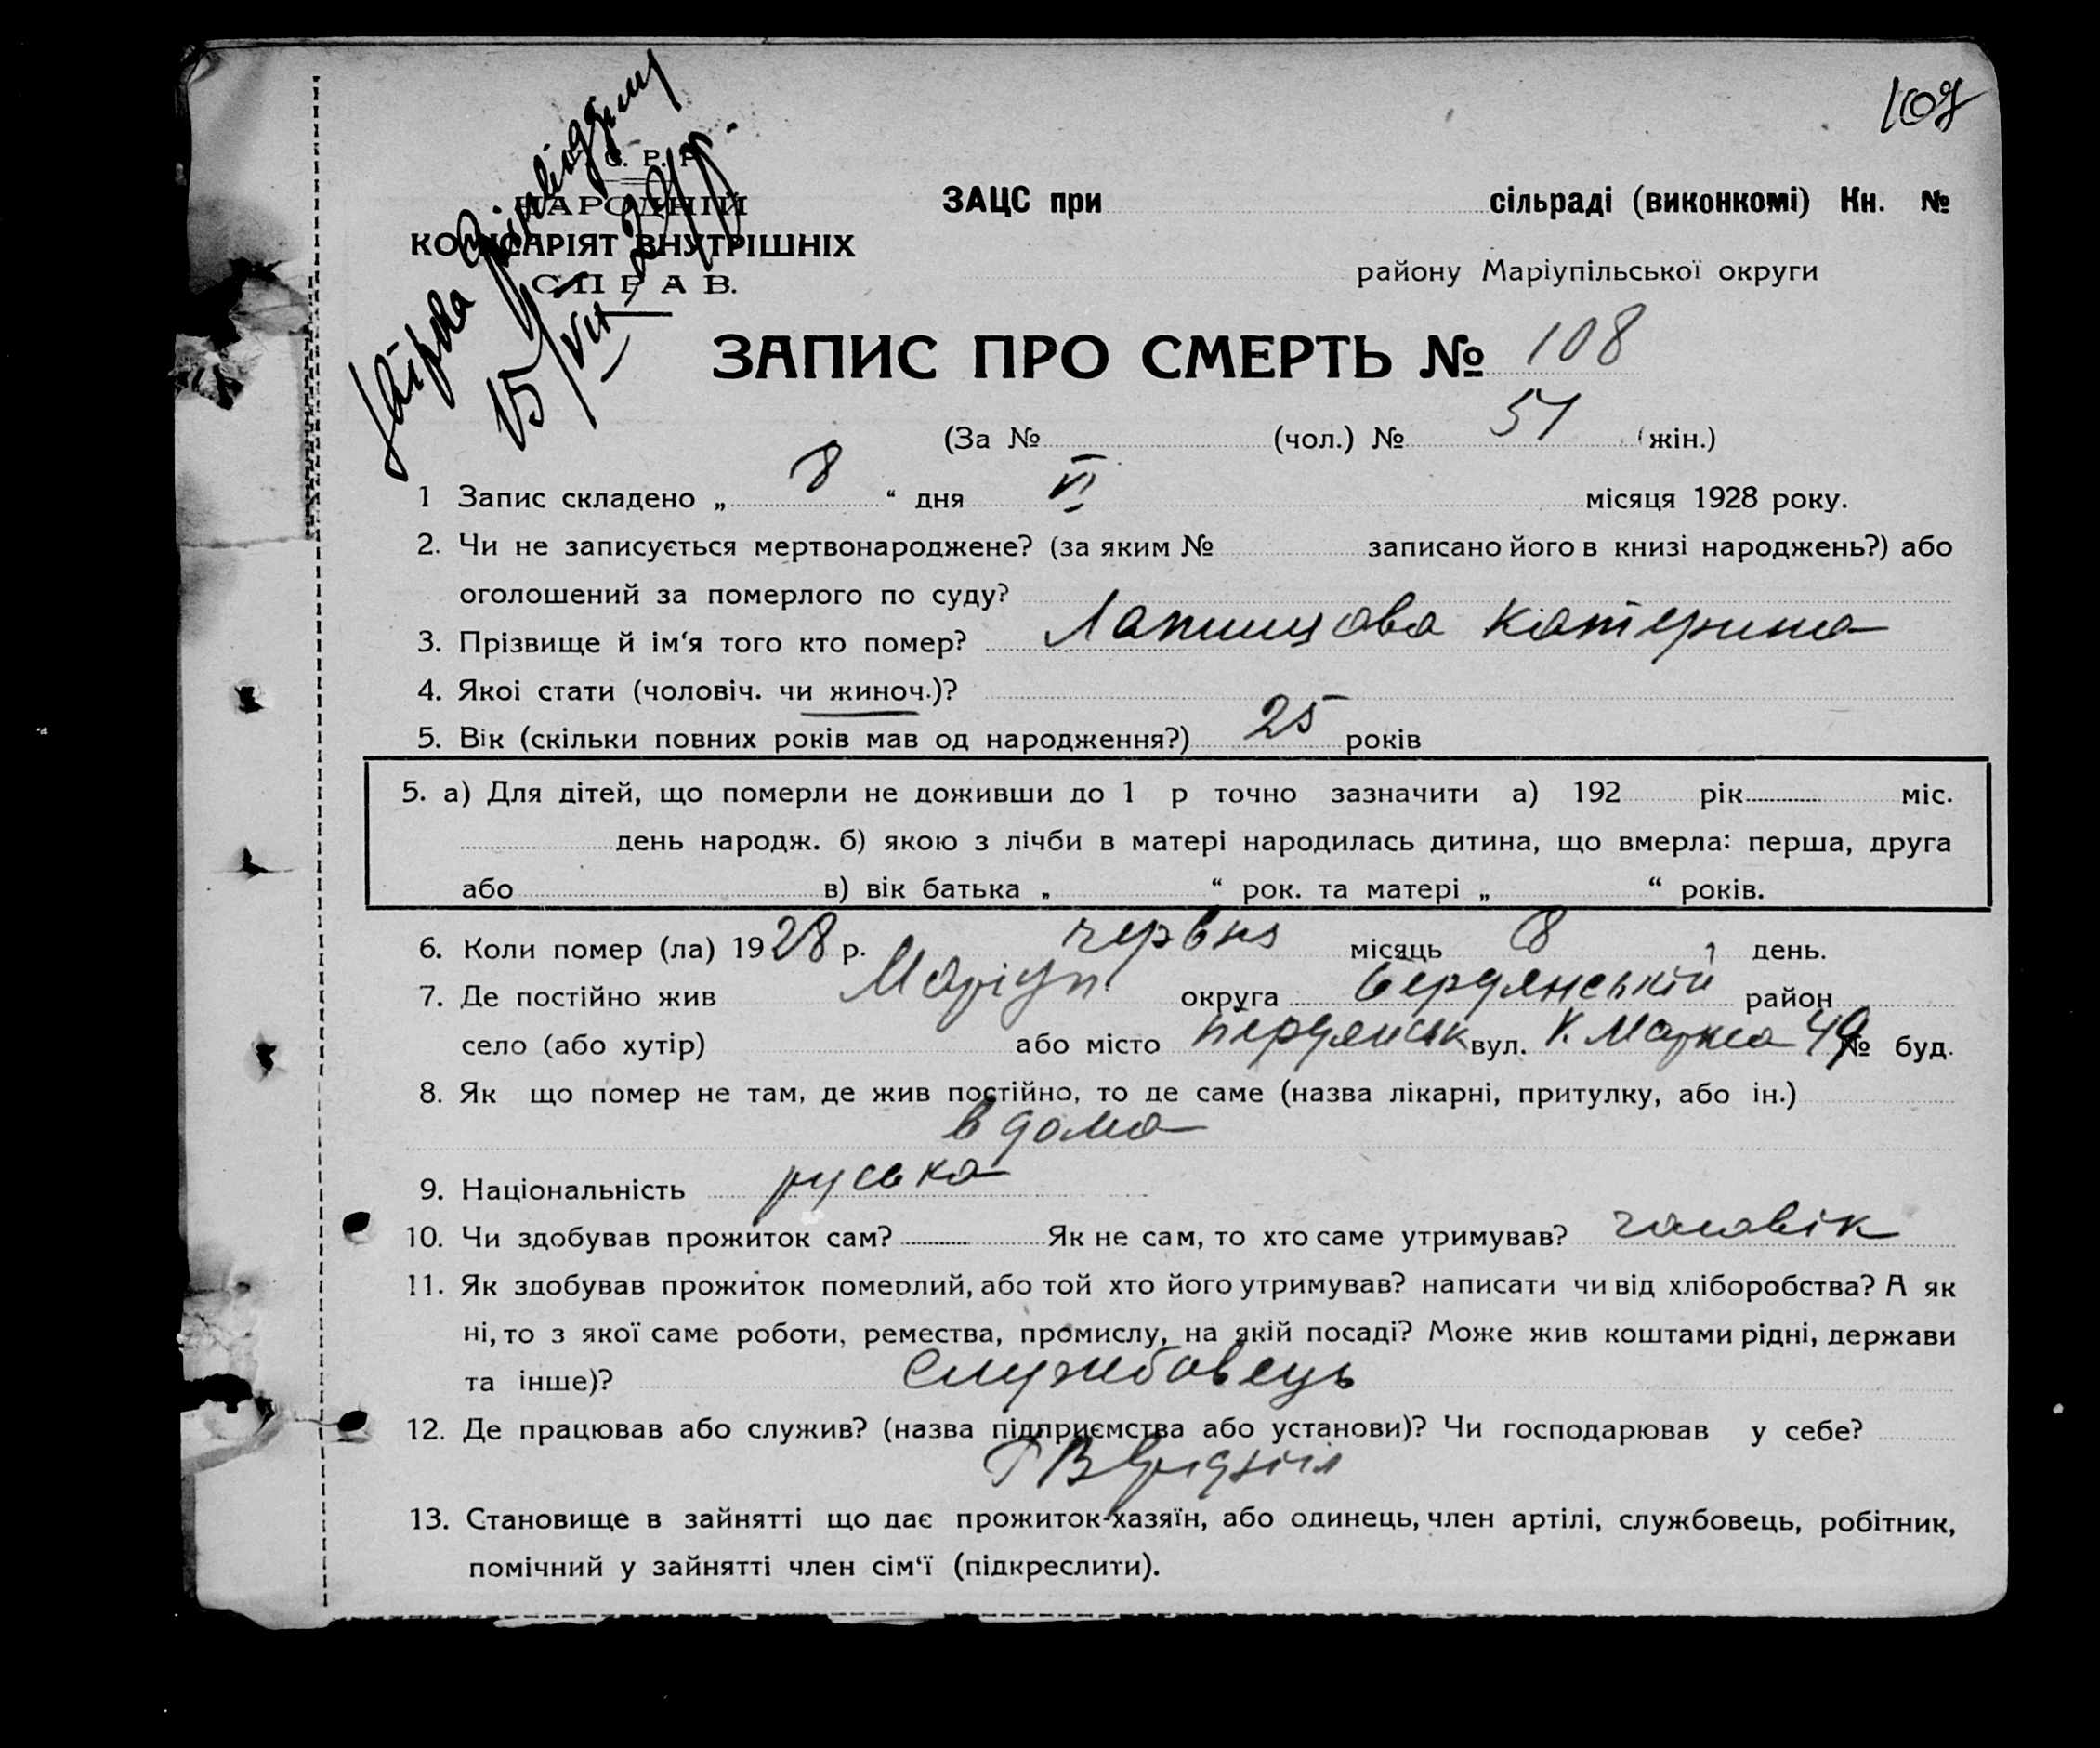 109
С. Р. Р.
НАРОДНІЙ
КОМІСАРІЯТ ВНУТРІШНІХ
СПРАВ.
15/VII 29 р.
ЗАЦС при сільраді (виконкомі) Кн. №
району Маріупільської округи
ЗАПИС ПРО СМЕРТЬ № 108
(За № (чол.) № 51 (жін.)
1 Запис складено „ 8 “ дня VI місяця 1928 року.
2. Чи не записується мертвонароджене? (за яким № записано його в книзі народжень?) або
оголошений за померлого по суду?
3. Прізвище й ім‘я того кто помер? Катерина
4. Якоі стати (чоловіч. чи жиноч.)?
5. Вік (скільки повних років мав од народження?) 25 років
5. а) Для дітей, що померли не доживши до 1 р точно зазначити а) 192 рік міс.
день народж. б) якою з лічби в матері народилась дитина, що вмерла: перша, друга
або в) вік батька „ “ рок. та матері „ “ років.
6. Коли помер (ла) 1928 р. червня місяць 8 день.
7. Де постійно жив Маріуп. округа Бердянський район
село (або хутір) або місто Бердянськ вул. К. Маркса 49 № буд.
8. Як що помер не там, де жив постійно, то де саме (назва лікарні, притулку, або ін.)
в дома
9. Національність руська
10. Чи здобував прожиток сам? Як не сам, то хто саме утримував? чоловік
11. Як здобував прожиток померлий, або той хто його утримував? написати чи від хліборобства? А як
ні, то з якої саме роботи, ремества, промислу, на якій посаді? Може жив коштами рідні, держави
та інше)? Службовець
12. Де працював або служив? (назва підприємства або установи)? Чи господарював у себе?
13. Становище в зайнятті що дає прожиток-хазяїн, або одинець, член артілі, службовець, робітник,
помічний у зайнятті член сім‘ї (підкреслити).